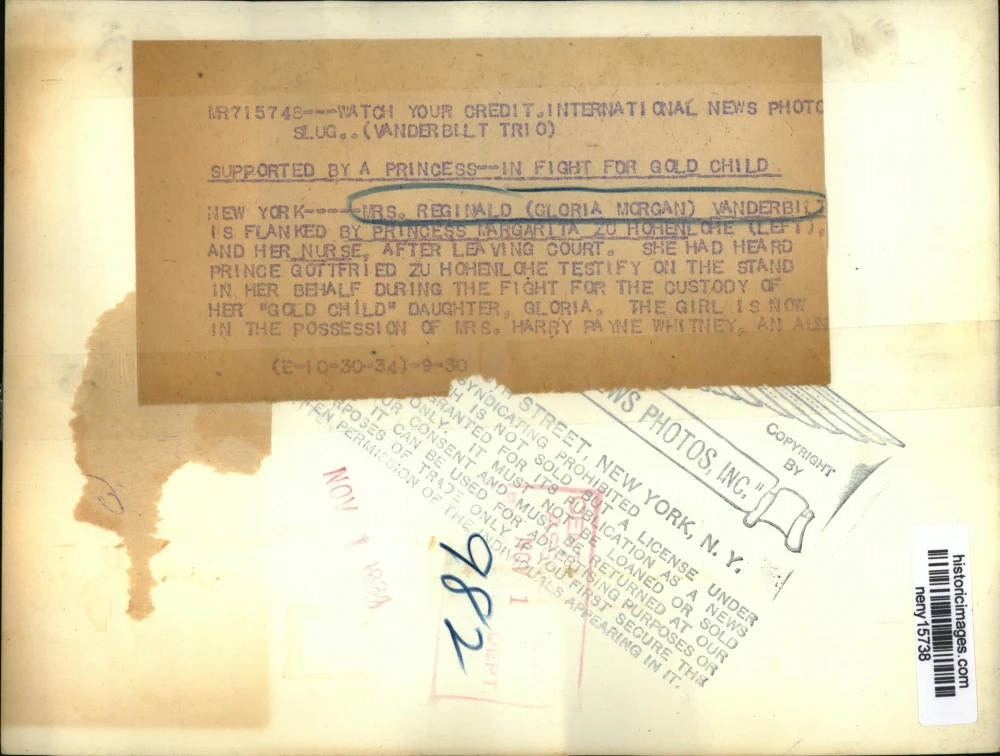 MR715748---WATCH YOUR CREDIT.INTERNATIONAL NEWS PHOTO
SLUG..(VANDERBILT TRIO)
SUPPORTED BY A PRINCESS--IN FIGHT FOR GOLD CHILD
NEW YORK-----MRS. REGINALD (GLORIA MORGAN) VANDERBILT
IS FLANKED BY PRINCESS MARGARITA ZU HOHENLOHE (LEFT),
AND HER NURSE, AFTER LEAVING COURT. SHE HAD HEARD
PRINCE GOTTFRIED ZU HOHENLOHE TESTIFY ON THE STAND
IN HER BEHALF DURING THE FIGHT FOR THE CUSTODY OF
HER "GOLD CHILD" DAUGHTER, GLORIA. THE GIRL IS NOW
IN THE POSSESSION OF MRS. HARRY PAYNE WHITNEY, AN AUN
(E-10-30-34)-9-30
COPYRIGHT
BY
NEWS PHOTOS, INC.
STREET, NEW YORK, N. Y.
SYNDICATING PROHIBITED
IS NOT SOLD BUT A LICENSE UNDER
GRANTED FOR ITS PUBLICATION AS A NEWS
ONLY. IT MUST NOT BE LOANED OR SOLD
OUR CONSENT AND MUST BE RETURNED AT OUR
IT CAN BE USED FOR ADVERTISING PURPOSES OR
PURPOSES OF TRADE ONLY IF YOU FIRST SECURE THE
WRITTEN PERMISSION OF THE INDIVIDUALS APPEARING IN IT.
NOV 1 1934
NOV 1
DEPT.
982
historicimages.com
neny15738